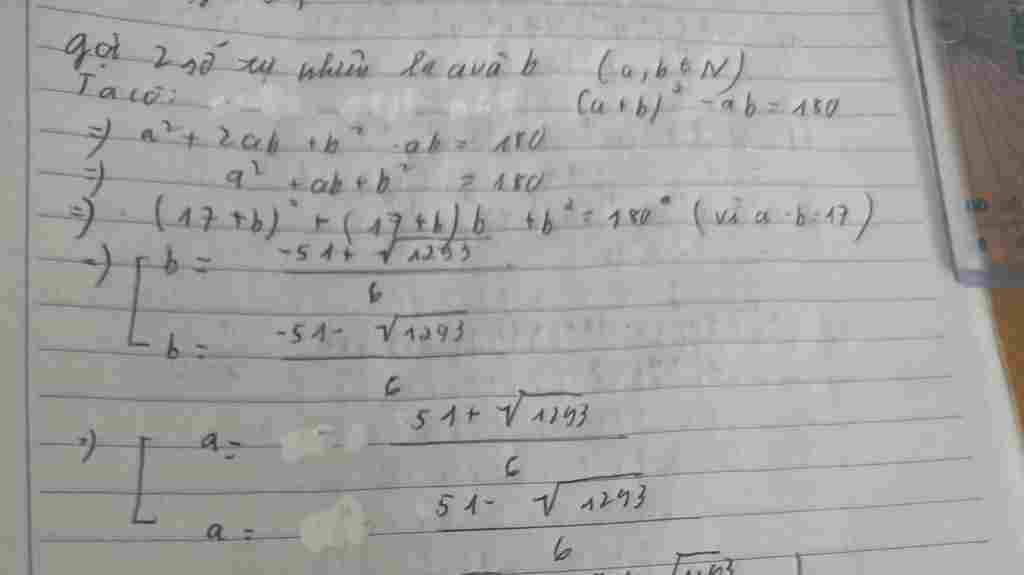 Gọi 2 số tự nhiên là a và b (a, b ∈ N)
Ta có: (a + b)² - ab = 180
=) a² + 2ab + b² - ab = 180
=) a² + ab + b² = 180
=) (17 + b)² + (17 + b) b + b² = 180 (vì a - b = 17)
=) [ b = (-51 + √1293) / 6
b = (-51 - √1293) / 6
=) [ a = (51 + √1293) / 6
a = (51 - √1293) / 6